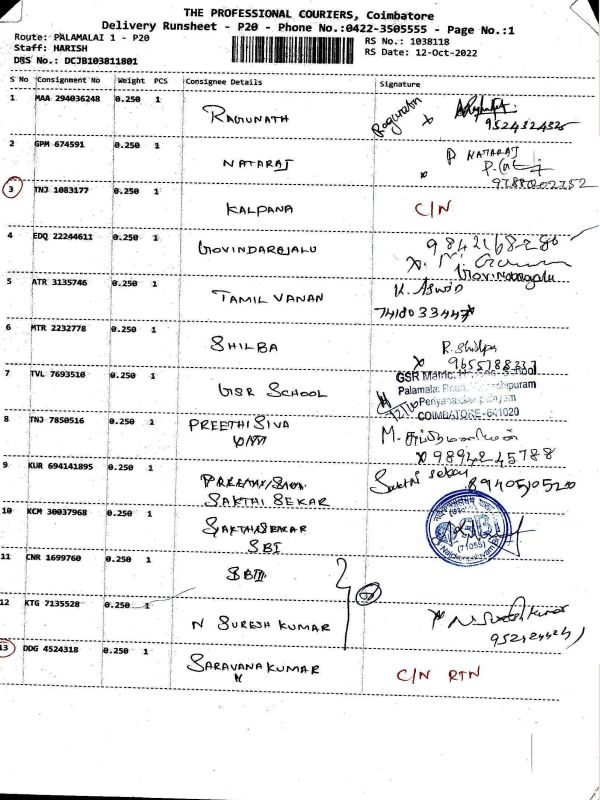 THE PROFESSIONAL COURIERS, Coimbatore
Delivery Runsheet - P20 - Phone No.:0422-3505555 - Page No.:1
Route: PALAMALAI 1 - P20
RS No.: 1038118
Staff: HARISH
RS Date: 12-Oct-2022
DRS No.: DCJB103811801
S No Consignment No Weight PCS Consignee Details Signature
1 MAA 294036248 0.250 1 RAGUNATH Ragunath
9524324325
2 GPM 674591 0.250 1 NATARAJ P NATARAJ
3 TNJ 1083177 0.250 1 KALPANA C/N
4 EDQ 22244611 0.250 1 GOVINDARAJALU
Govindarajalu
5 ATR 3135746 0.250 1 TAMIL VANAN K. Aswin
7418033447
6 MTR 2232778 0.250 1 SHILBA R. Shilpa
7 TVL 7693510 0.250 1 GSR SCHOOL GSR Matric
COIMBATORE-641020
8 TNJ 7850516 0.250 1 PREETHI SIVA
9894245788
9 KUR 694141895 0.250 1 Sakthi sekar
SAKTHI SEKAR
10 KCM 30037968 0.250 1 SAKTHI SEKAR
SBI
(71055)
11 CNR 1699760 0.250 1 SBI
12 KTG 7135528 0.250 1 N SURESH KUMAR N. Suresh Kumar
13 DDG 4524318 0.250 1 SARAVANA KUMAR C/N RTN